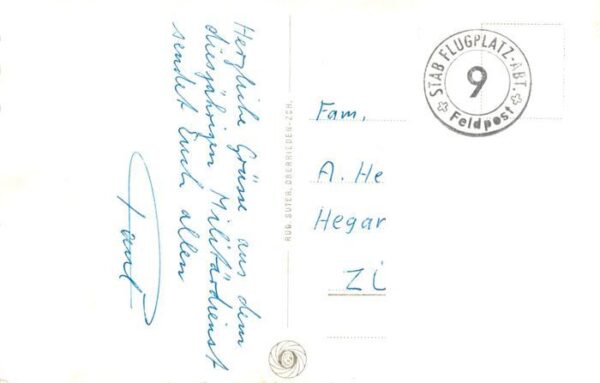 Herzliche Grüsse aus dem
diesjährigen Militärdienst
sendet Euch allen
RUD. SUTER, OBERRIEDEN-ZCH.
STAB FLUGPLATZ-ABT.
9
Feldpost
Fam.
A. He
Hegar